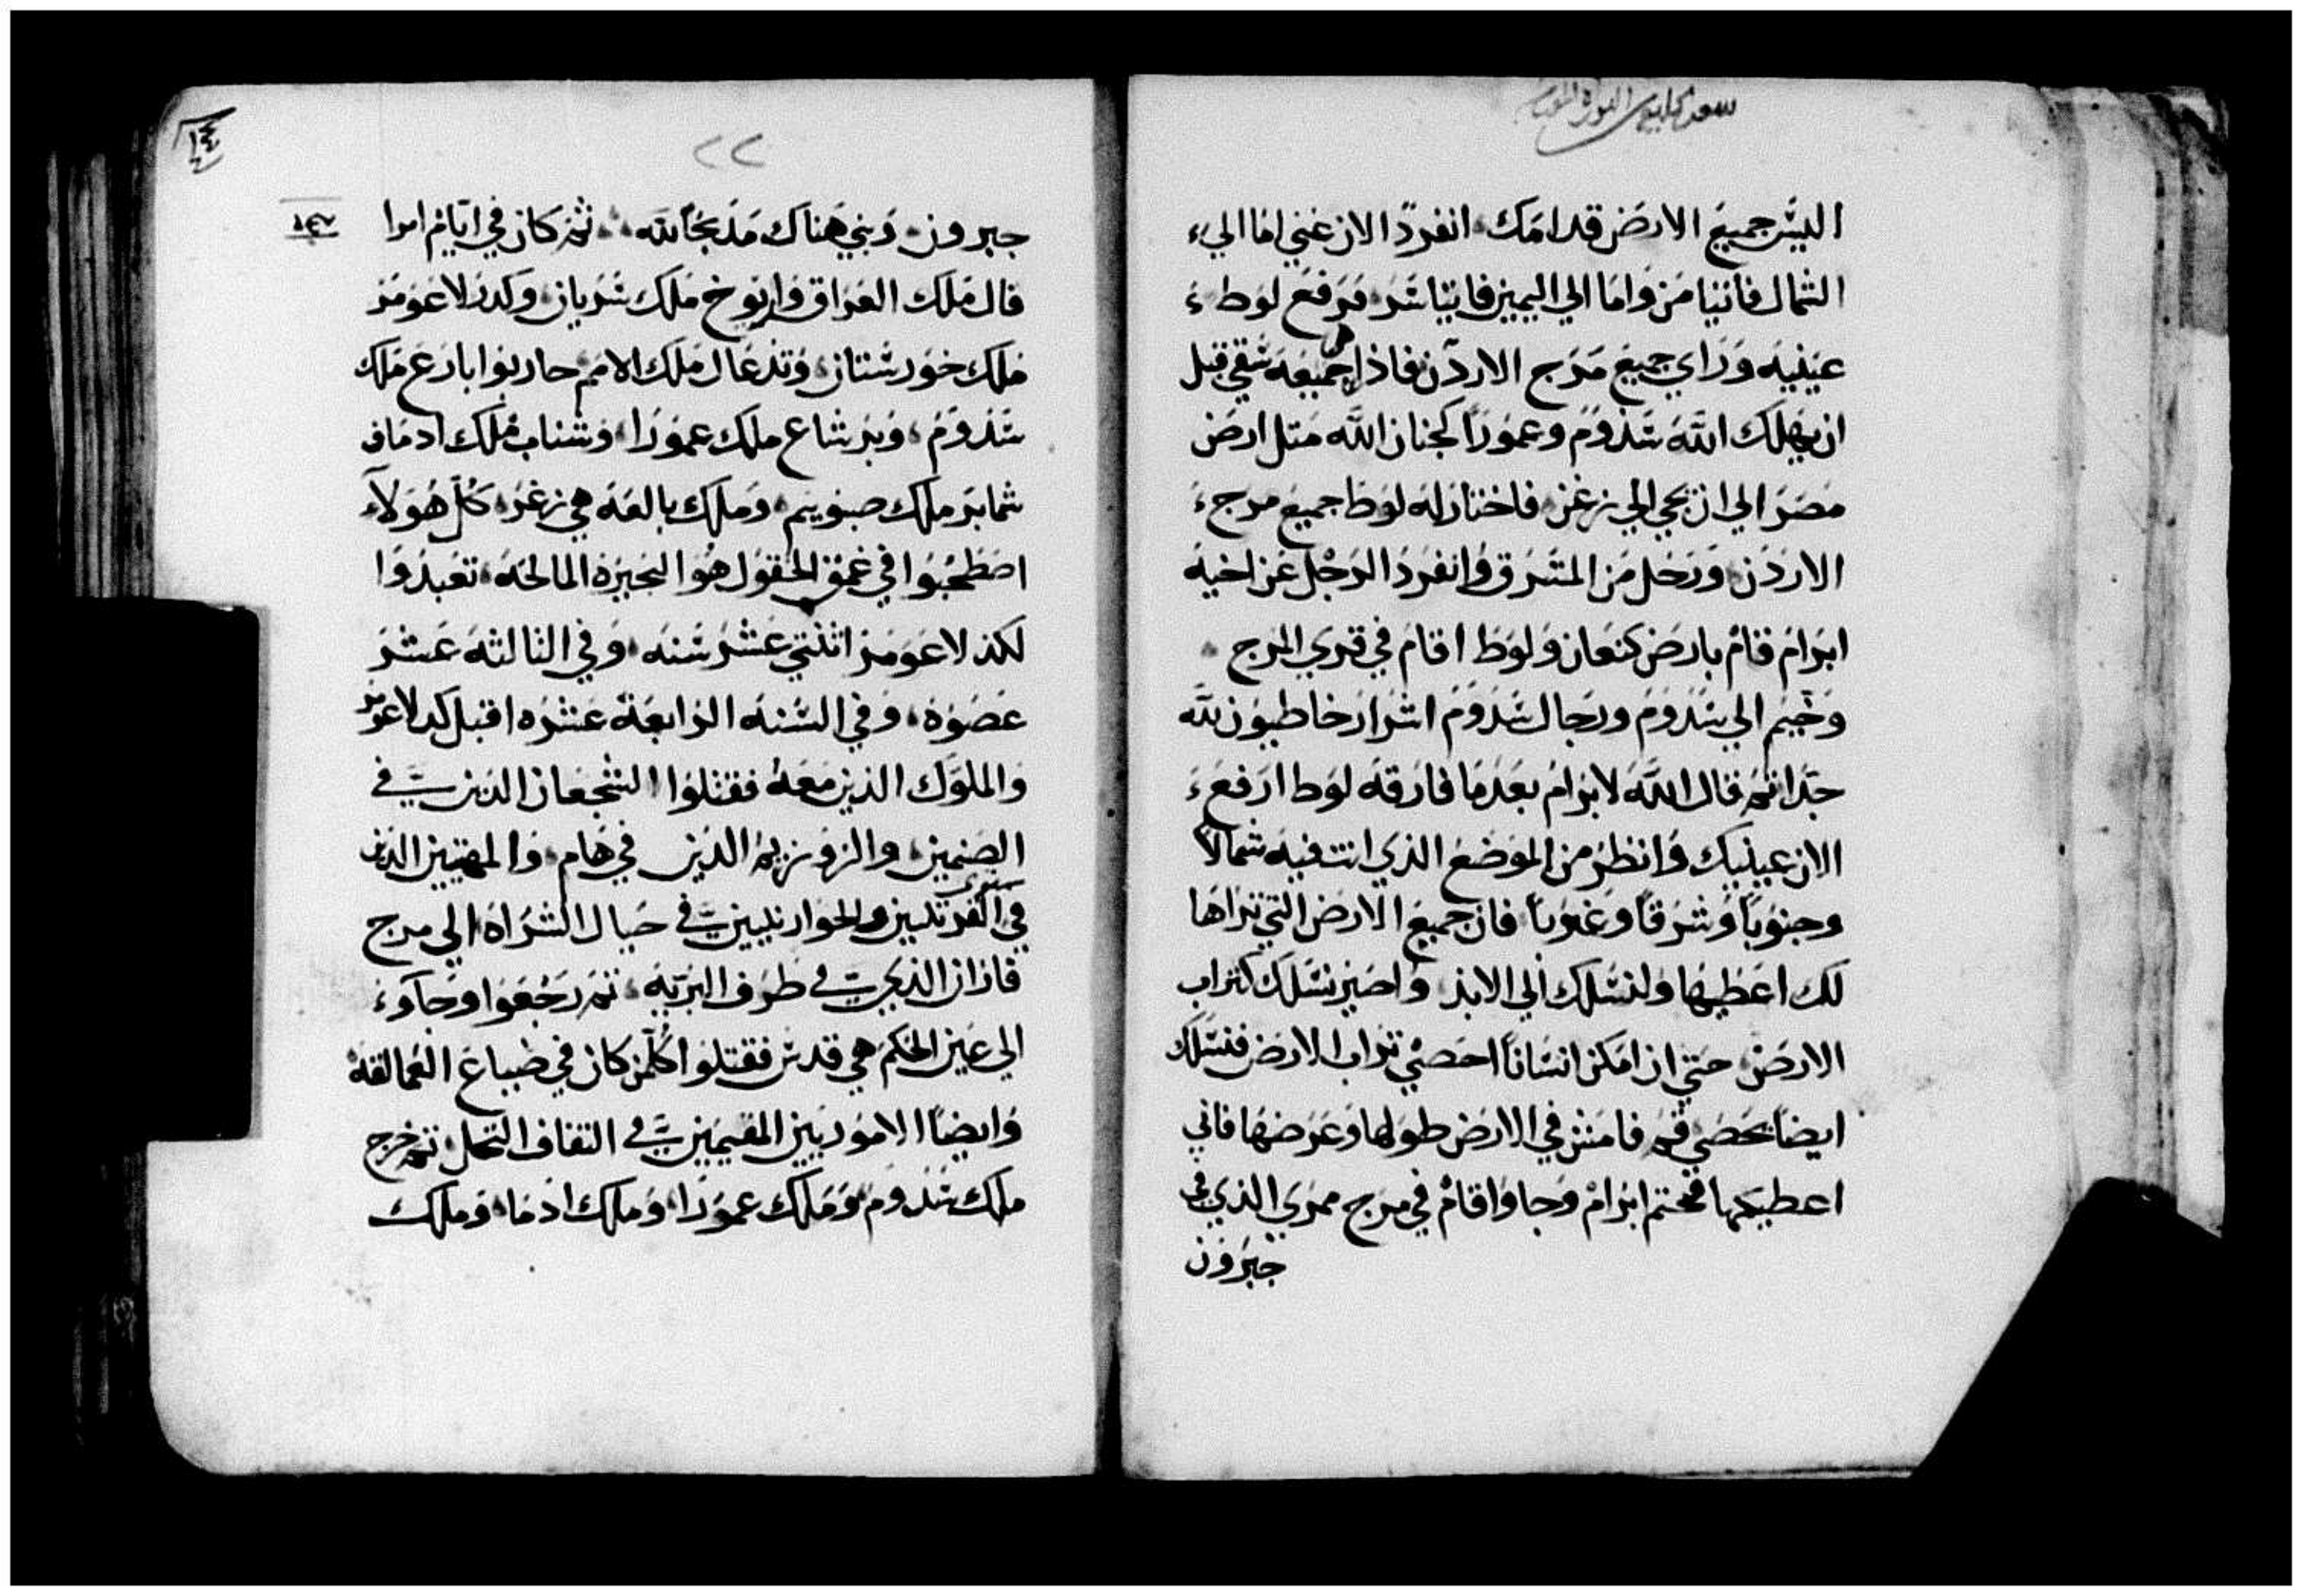 اليس جميع الارض قدامك انفرد الان عني اما الي
الشمال فاتيامن واما الي اليمين فاتياسر فرفع لوط
عينيه وراي جميع مرج الاردن فاذا جميعه سقي قبل
ان يهلك الله سدوم وعمورا كجنان الله مثل ارض
مصر الي ان تجي الي زغر فاختار له لوط جميع مرج
الاردن ورحل من المشرق وانفرد الرجل عن اخيه
ابرام قام بارض كنعان ولوط اقام في قري المرج
وخيم الي سدوم ورجال سدوم اشرار خاطيون لله
جدا ثم قال الله لابرام بعدما فارقه لوط ارفع
الان عينيك وانظر من الموضع الذي انت فيه شمالا
وجنوبا وشرقا وغربا فان جميع الارض التي تراها
لك اعطيها ولنسلك الي الابد واصير نسلك كتراب
الارض حتي ان امكن انسانا احصي تراب الارض فنسلك
ايضا يحصي قم فامش في الارض طولها وعرضها فاني
اعطيكها فخيم ابرام وجا واقام في مرج ممري الذي في
حبرون
١٤
٢٢
حبرون وبني هناك مذبحا لله ثم كان في ايام امرا
فال ملك العراق واريوخ ملك سريان وكدرلاعومر
ملك خورستان وتدعال ملك الامم حاربوا بارع ملك
سدوم وبرشاع ملك عمورا وشناب ملك ادما
شمابر ملك صبوييم وملك بالعه هي زغر كل هولاء
اصطحبوا في عمق الحقول هو البحيره المالحه تعبدوا
لكدرلاعومر اثنتي عشر سنه وفي الثالثه عشر
عصوه وفي السنه الرابعة عشره اقبل كدرلاعومر
والملوك الذين معه فقتلوا الشجعان الذين في
الصنمين والزوزيه الذين في هام والمهتيين الذين
في القريتيين والحوارنيين في حيال الشراه الي مرج
فاران الذي في طرف البريه ثم رجعوا وجآوء
الي عين الحكم هي قدس فقتلوا كلمن كان في ضياع العمالقه
وايضا الاموريين المقيمين في التفاف النخل ثم خرج
ملك سدوم وملك عمورا وملك ادما وملك